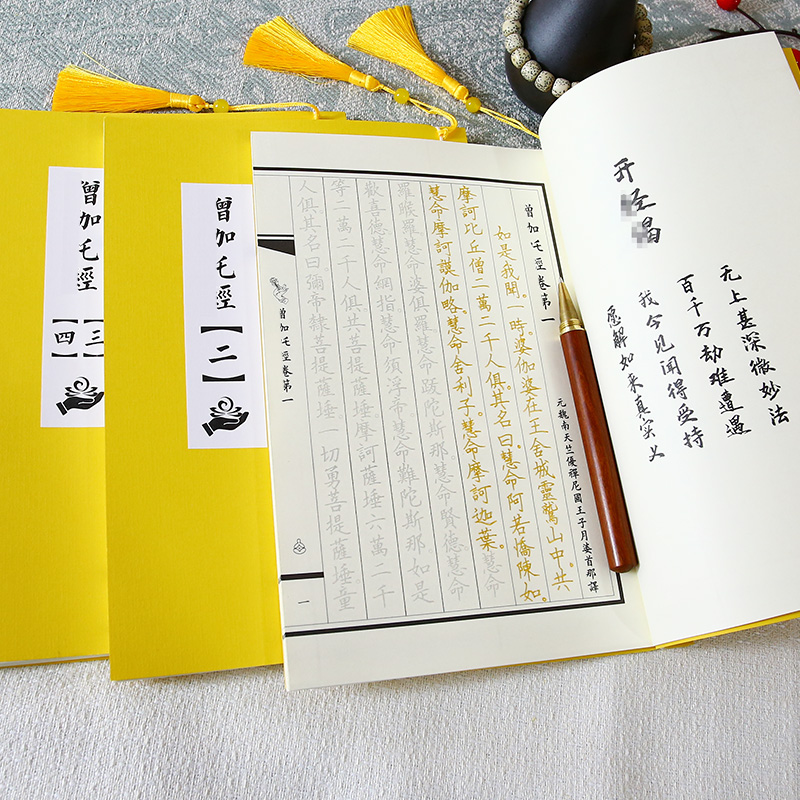 开
无上甚深微妙法
百千万劫难遭遇
我今见闻得受持
愿解如来真实义
曾加乇經卷第一
元魏南天竺優禪尼國王子月婆首那譯
如是我聞。一時。婆伽婆在王舍城靈鷲山中。共
摩訶比丘僧二萬二千人俱。其名曰。慧命阿若憍陳如。
慧命摩訶謨伽略。慧命舍利子。慧命摩訶迦葉。慧命
羅睺羅慧命婆俱羅慧命跋陀斯那慧命賢德慧命
歡喜德慧命網指慧命須浮帝慧命難陀斯那如是
等二萬二千人俱共菩提薩埵摩訶薩埵六萬二千
人俱其名曰彌帝隸菩提薩埵一切勇菩提薩埵童
曾加乇經卷第一
一
曾加乇經【二】
曾加乇經
【三
【四】